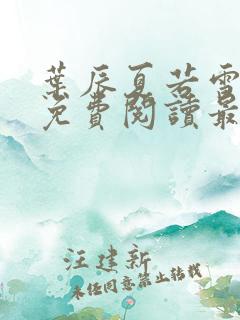 葉辰夏若雪
免費閱讀最
汪建新
未經同意禁止轉載